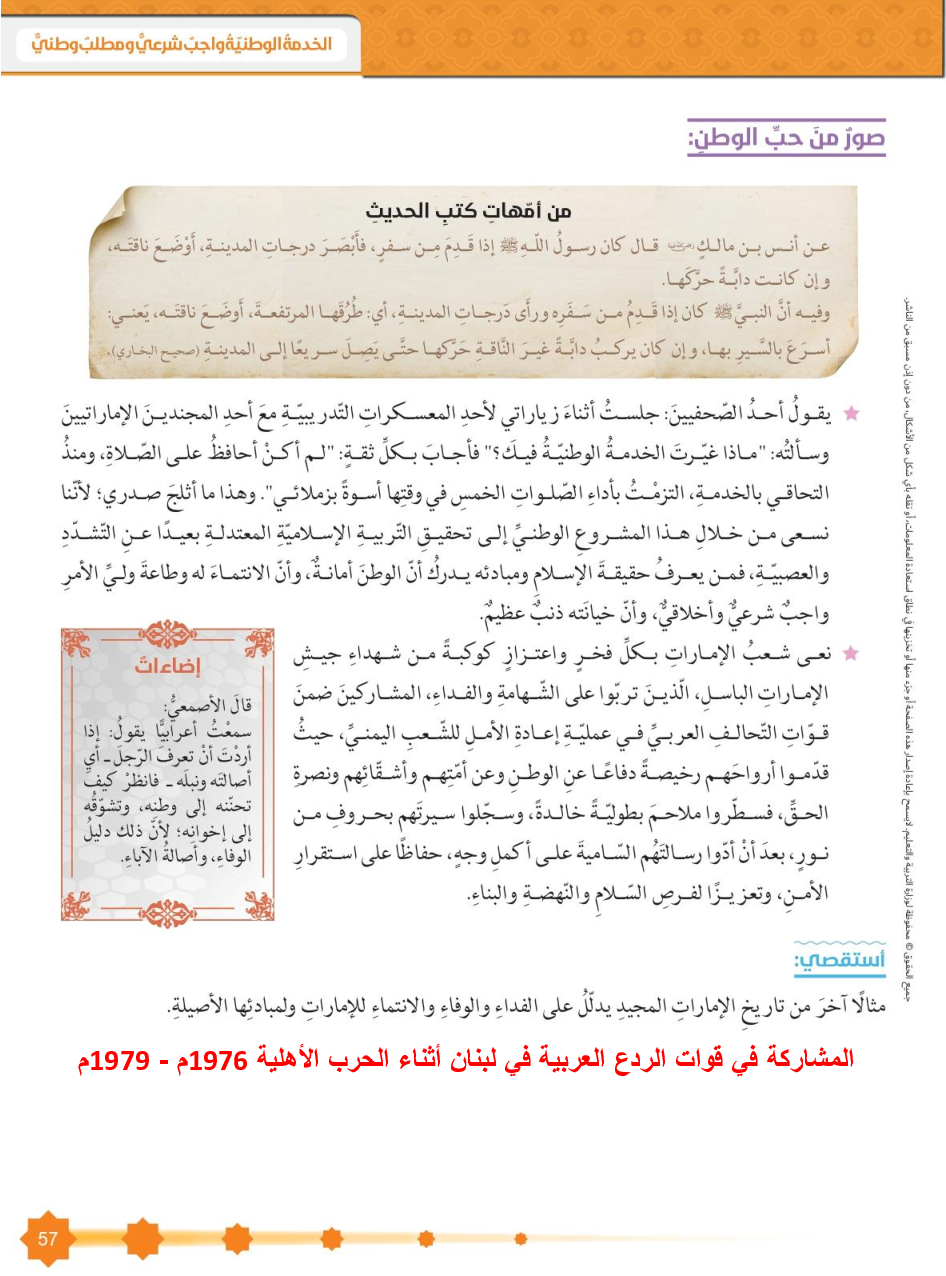 الخدمةُ الوطنيّةُ واجبٌ شرعيٌّ ومطلبٌ وطنيٌّ
صورٌ منَ حبِّ الوطنِ:
من أمّهاتِ كتبِ الحديثِ
عـن أنـس بـن مالـكٍ رضي الله عنه قـال كان رسـولُ اللـهِ ﷺ إذا قَـدِمَ مِـن سـفرٍ، فأَبْصَرَ درجـاتِ المدينـةِ، أَوْضَـعَ ناقتَـه،
وإن كانـت دابَّـةً حرَّكَهـا.
وفيـه أنَّ النبـيَّ ﷺ كان إذا قَـدِمَ مـن سَـفَرِه ورأى دَرجـاتِ المدينـةِ، أي: طُرُقَهـا المرتفعـةَ، أَوضَـعَ ناقتَـه، يَعنـي:
أسـرَعَ بالسَّـيرِ بهـا، وإن كان يركـبُ دابَّـةً غيـرَ النَّاقـةِ حَرَّكَهـا حتَّـى يَصِـلَ سـريعًا إلـى المدينـةِ (صحيح البخاري).
يقـولُ أحـدُ الصّحفيينَ: جلسـتُ أثنـاءَ زيـاراتي لأحـدِ المعسـكراتِ التّدريبيّـةِ معَ أحـدِ المجنديـنَ الإماراتيينَ
وسـألتُه: "مـاذا غيّـرَتِ الخدمـةُ الوطنيّةُ فيـكَ؟" فأجـابَ بـكلِّ ثقـةٍ: "لـم أكـنْ أحافـظُ علـى الصّـلاةِ، ومنذُ
التحاقـي بالخدمـةِ، التزمْـتُ بـأداءِ الصّلـواتِ الخمسِ في وقتِها أسـوةً بزملائـي". وهـذا ما أثلجَ صـدري؛ لأنّنا
نسـعى مـن خـلالِ هـذا المشـروعِ الوطنـيِّ إلـى تحقيـقِ التّربيـةِ الإسـلاميّةِ المعتدلـةِ بعيـدًا عـنِ التّشـدّدِ
والعصبيّـةِ، فمـن يعـرفُ حقيقـةَ الإسـلامِ ومبادئِه يـدركُ أنّ الوطنَ أمانـةٌ، وأنّ الانتمـاءَ لـه وطاعةَ ولـيِّ الأمرِ
واجبٌ شرعيٌّ وأخلاقيٌّ، وأنّ خيانتَه ذنبٌ عظيمٌ.
نعـى شـعبُ الإمـاراتِ بـكلِّ فخـرٍ واعتـزازٍ كوكبـةً مـن شـهداءِ جيـشِ
الإمـاراتِ الباسـلِ، الّذيـنَ تربّـوا علـى الشّـهامةِ والفـداءِ، المشـاركينَ ضمنَ
قـوّاتِ التّحالـفِ العربـيِّ فـي عمليّـةِ إعـادةِ الأمـلِ للشّـعبِ اليمنـيِّ، حيثُ
قدّمـوا أرواحَهـم رخيصـةً دفاعًـا عنِ الوطـنِ وعن أمّتِهـم وأشـقّائِهم ونصـرةِ
الحـقِّ، فسـطّروا ملاحـمَ بطوليّـةً خالـدةً، وسـجّلوا سـيرتَهم بحـروفٍ مـن
نـورٍ، بعـدَ أنْ أدّوا رسـالتَهُم السّـاميةَ علـى أكمـلِ وجـهٍ، حفاظًـا علـى اسـتقرارِ
الأمـنِ، وتعزيـزًا لفـرصِ السّـلامِ والنّهضـةِ والبنـاءِ.
إضاءاتٌ
قالَ الأصمعيُّ:
سمعْتُ أعرابيًّا يقولُ: إذا
أردْتَ أنْ تعرفَ الرّجلَ ـ أي
أصالتَه ونبلَه ـ فانظرْ كيفَ
تحنّنه إلى وطنِه، وتشوّقُه
إلى إخوانِه؛ لأنّ ذلك دليلُ
الوفاءِ، وأصالةُ الآباءِ.
أستقصي:
مثالًا آخرَ من تاريخِ الإماراتِ المجيدِ يدلّلُ على الفداءِ والوفاءِ والانتماءِ للإماراتِ ولمبادئِها الأصيلةِ.
المشاركة في قوات الردع العربية في لبنان أثناء الحرب الأهلية 1976م - 1979م
جميع الحقوق © محفوظة لوزارة التربية والتعليم. لا يسمح بإعادة إصدار هذه الصفحة أو جزء منها أو تخزينها في نطاق استعادة المعلومات، أو نقله بأي شكل من الأشكال، من دون إذن مسبق من الناشر.
57